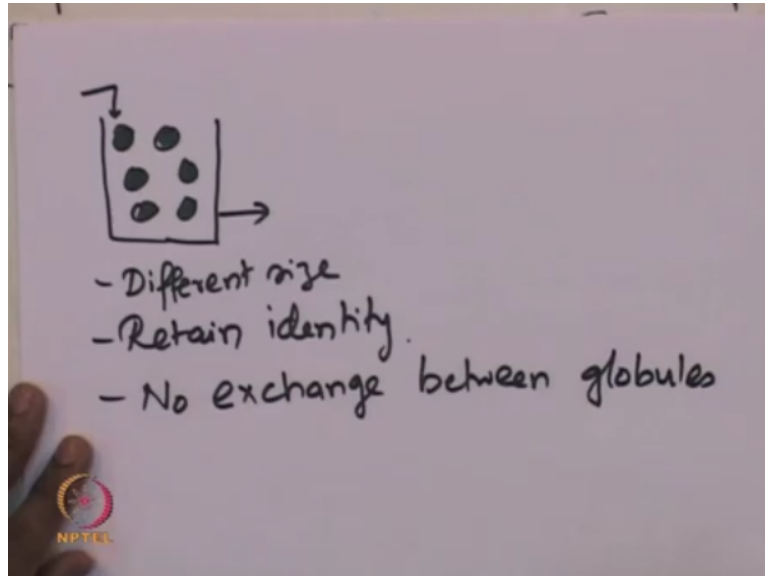 - Different size
- Retain identity.
- No exchange between globules
NPTEL